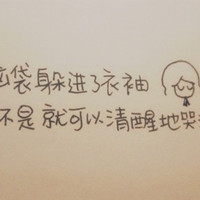 脑袋躲进了衣袖
不是就可以清醒地哭